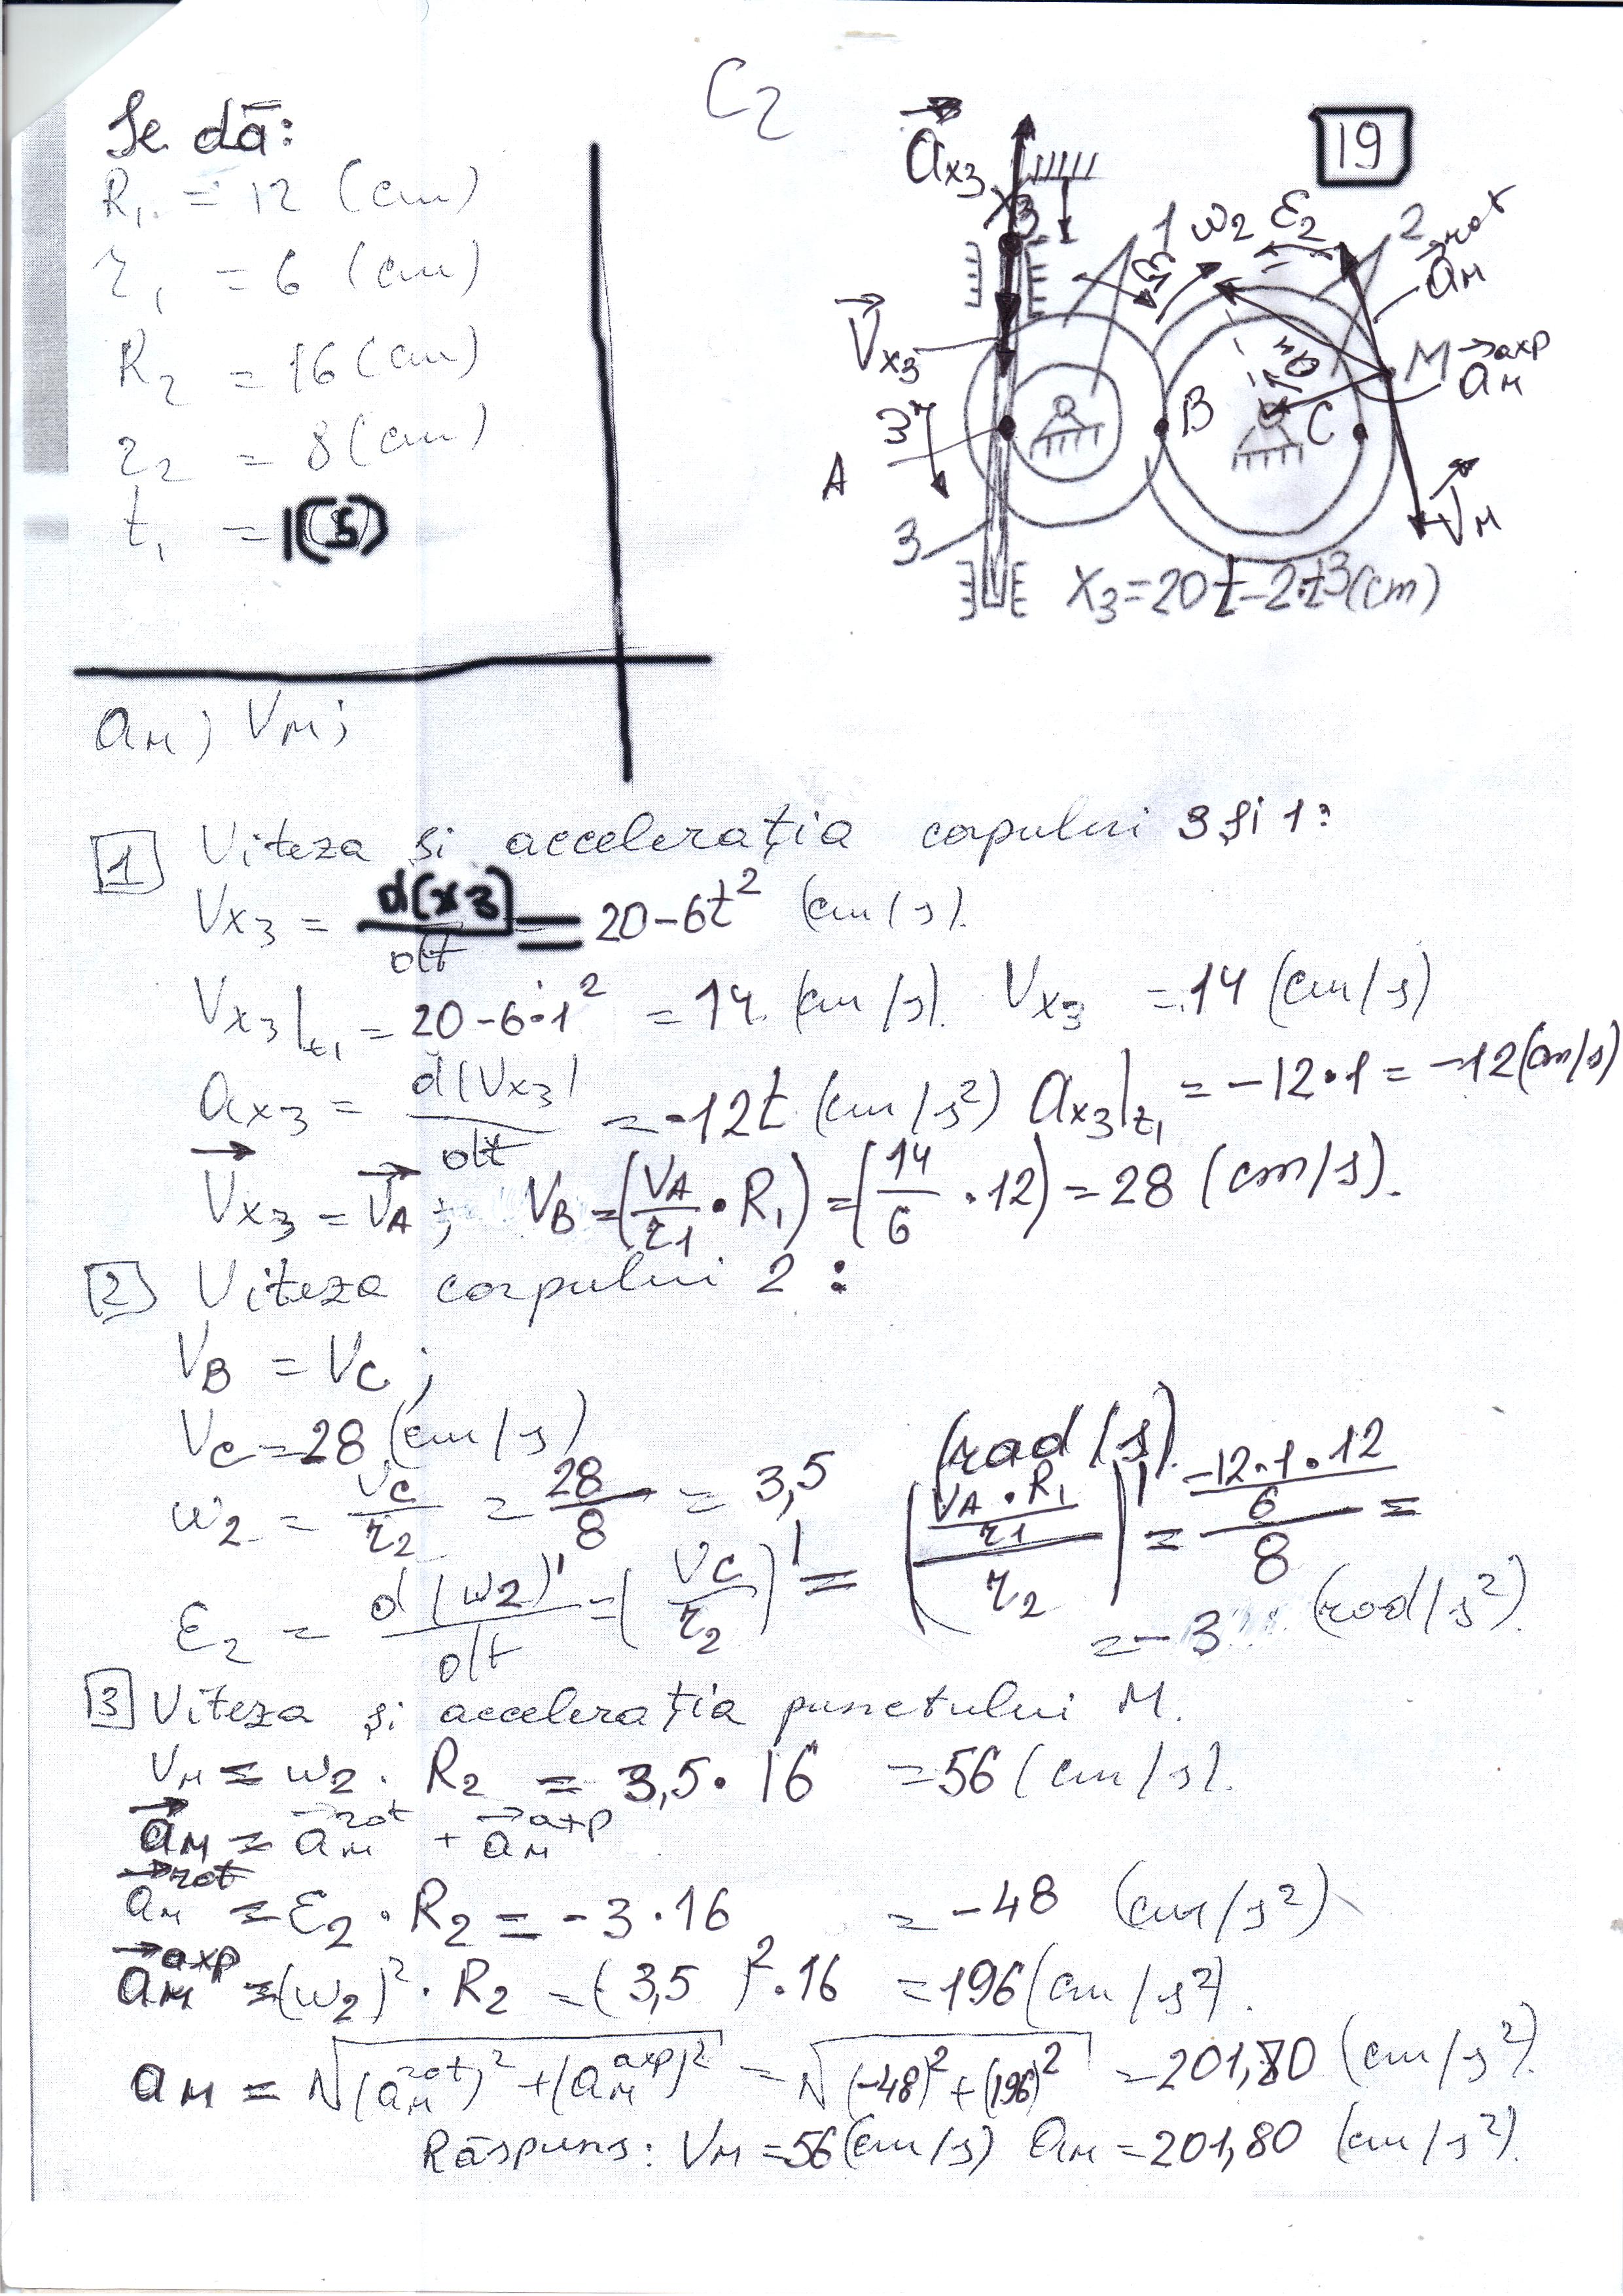 C2
Se dă:
R₁ = 12 (cm)
r₁ = 6 (cm)
R₂ = 16 (cm)
r₂ = 8 (cm)
t₁ = 1(s)
aм; Vм;
19
aх3
X3
1
ω2 ε2
2
aм rot
Vх3
M aм axp
B
C
A
3
Vм
X3=20t-2·t³(cm)
1 Viteza și accelerația corpului 3 și 1:
Vх3 = d(x3)/dt = 20-6t² (cm/s).
Vх3|t₁ = 20-6·1² = 14 (cm/s). Vх3 = 14 (cm/s)
aх3 = d(Vх3)/dt = -12t (cm/s²) aх3|t₁ = -12·1 = -12(cm/s)
Vх3 = VA; VB = (VA/r1 · R₁) = (14/6 · 12) = 28 (cm/s).
2 Viteza corpului 2 :
VB = VC;
VC = 28 (cm/s)
ω2 = VC/r2 = 28/8 = 3,5 (rad/s).
ε2 = d(ω2)'/dt = (VC/r2)' = ((VA·R₁/r1)/r2)' = (-12·1·12/6)/8 =
= -3 (rad/s²).
3 Viteza și accelerația punctului M.
Vм = ω2 · R2 = 3,5 · 16 = 56 (cm/s).
aм = aм rot + aм axp
aм rot = ε2 · R2 = -3·16 = -48 (cm/s²)
aм axp = (ω2)² · R2 = (3,5)²·16 = 196 (cm/s²).
aм = √(aм rot)² + (aм axp)² = √(-48)² + (196)² = 201,80 (cm/s²).
Răspuns: Vм = 56 (cm/s) aм = 201,80 (cm/s²).